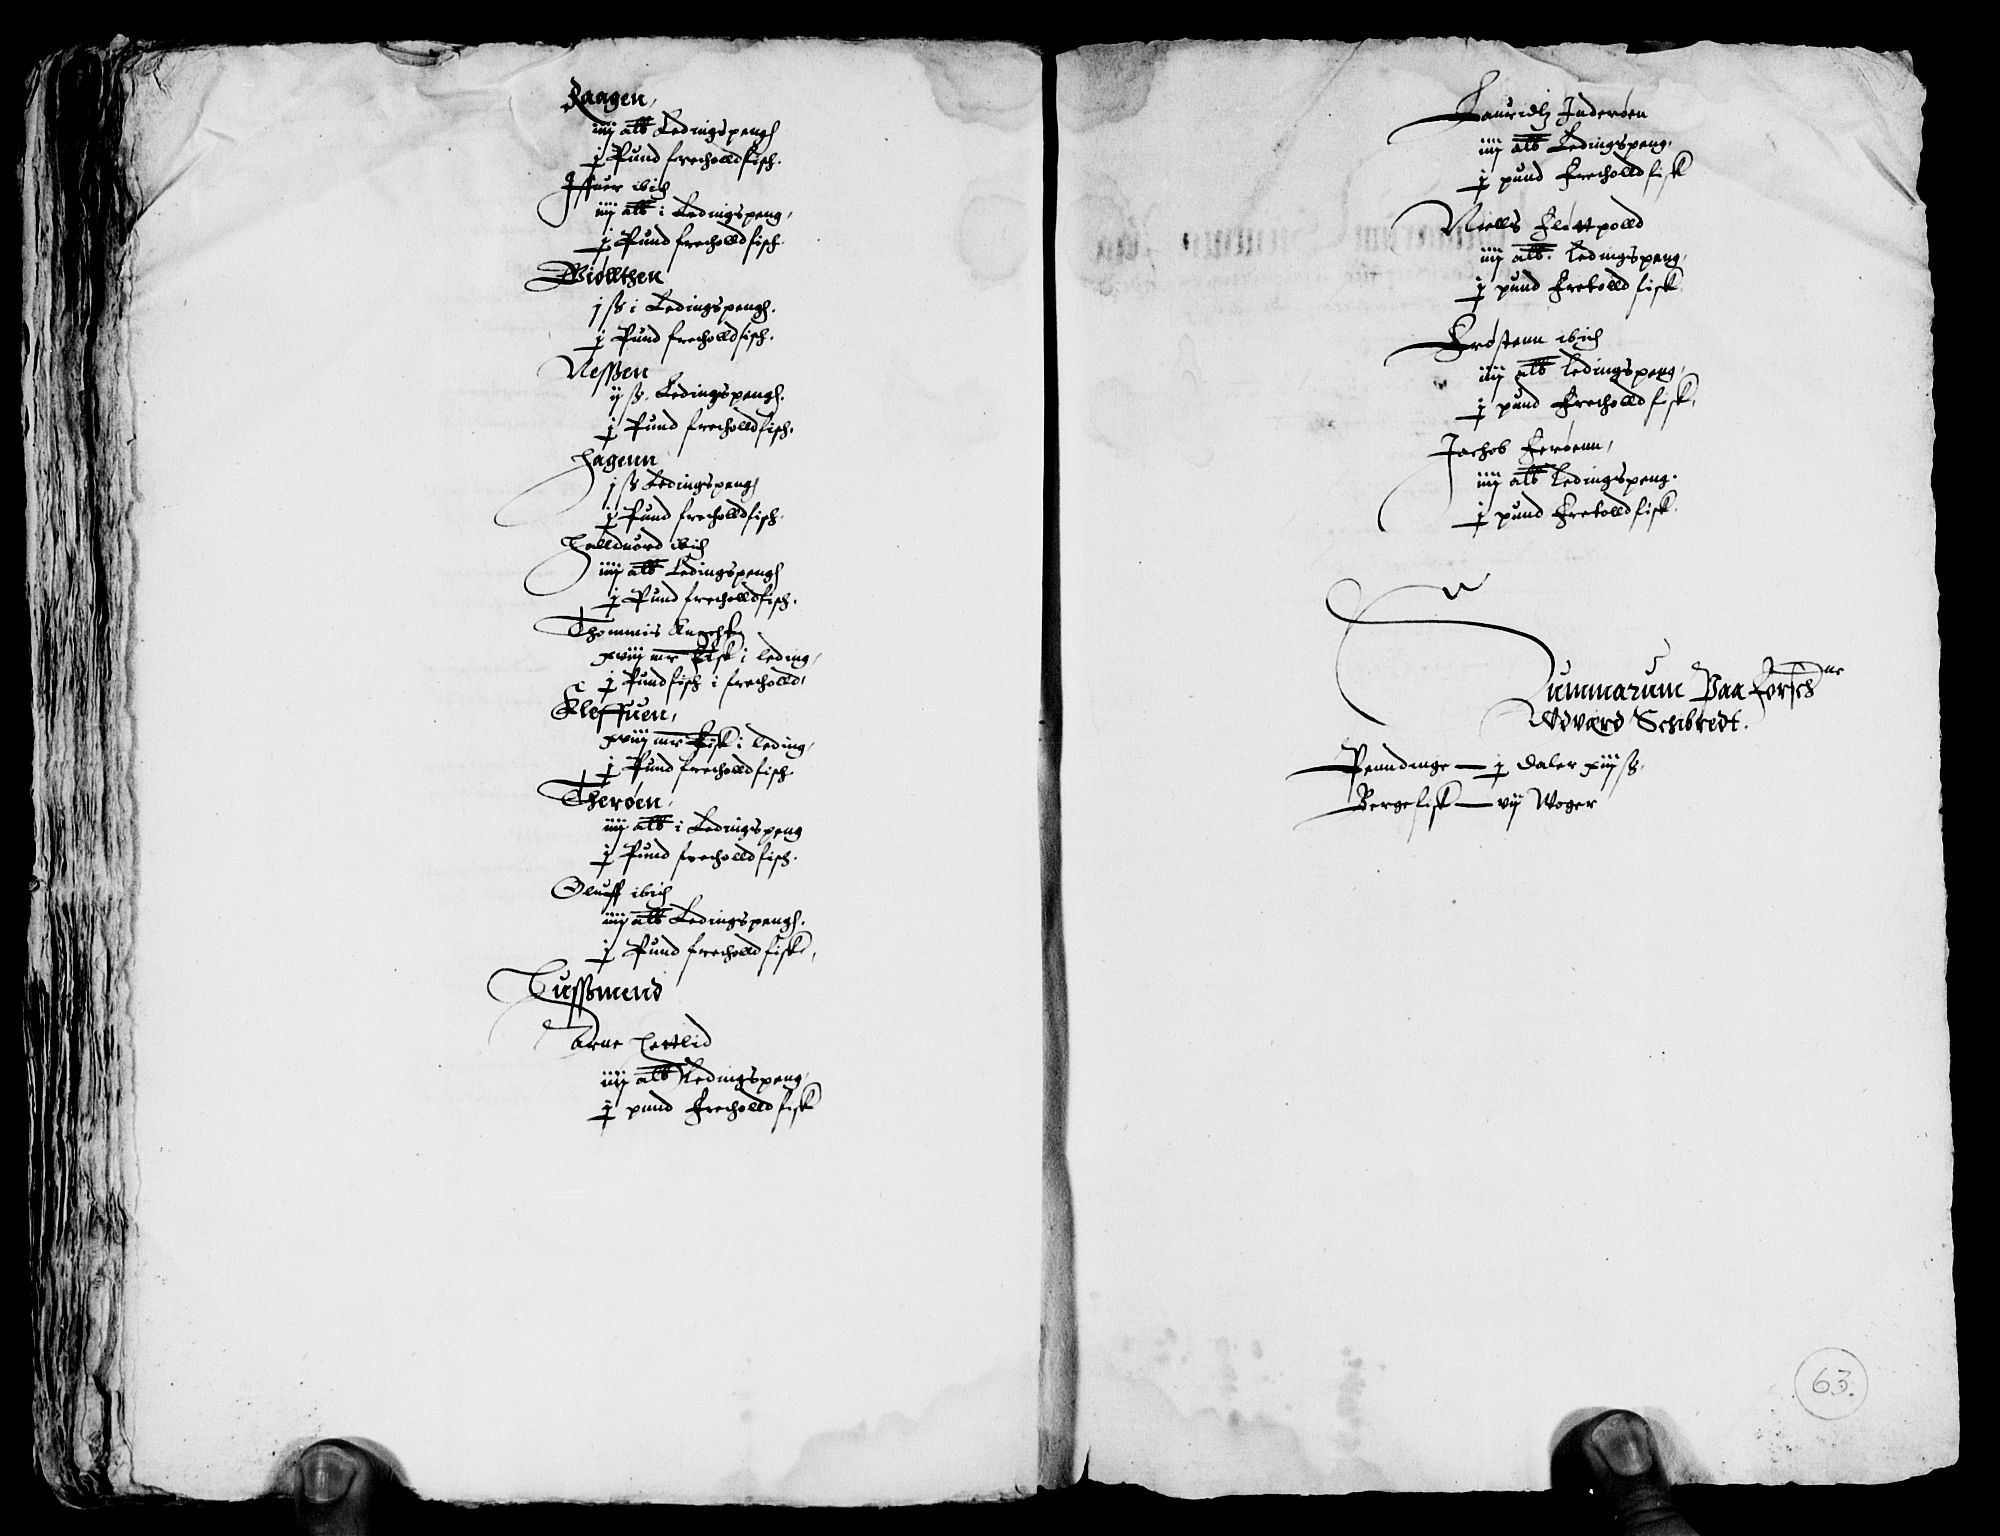 Raagen,
iiij alb Ledingspengh
j Pund frecholldfisch.
Iffuer ibid
iiij alb i Ledingspeng,
j Pund frecholldfisch.
Wiollthen
j ß i Ledingspengh.
j Pund frecholldfisch.
Nessen
ij ß. Ledingspengh.
j Pund frecholldfisch.
Hagenn
j ß Ledingspengh
j Pund frecholldfisch.
Halduord ibid
iiij alb Ledingspengh
j Pund frecholldfisch.
Thommis
xviij mr Fisk i leding,
j Pund fisch i frecholld,
Kleffuen,
xviij mr Fisk i leding,
j Pund frecholldfisch.
Therøen,
iiij alb i Ledingspeng
j Pund frecholldfisch.
Oluff ibid
iiij alb Ledingspengh.
j Pund frecholldfiske,
Hussmend
Arne Hertlid
iiij alb Ledingspeng,
j pund Frecholldfisk
Lauridtz Inderøen
iiij alb Ledingspeng,
j pund Frecholldfisk
Niells Flottpolld
iiij alb. Ledingspeng,
j pund Frekolldfisk.
Frøstenn ibid
iiij alb Ledingspeng,
j pund Frecholldfisk,
Jachob Ferøenn,
iiij alb Ledingspeng.
j pund Frekolldfisk.
Summarum Paa Forsch:ne
Wduærd Schibredt.
Penndinge — j daler xiij ß,
Bergefisk — vij Woger
63.